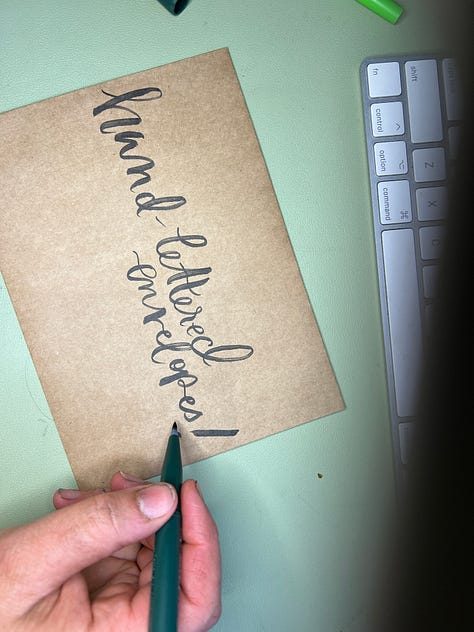 hand-lettered
envelopes!
fn
shift
control
option
command
Z
X
C